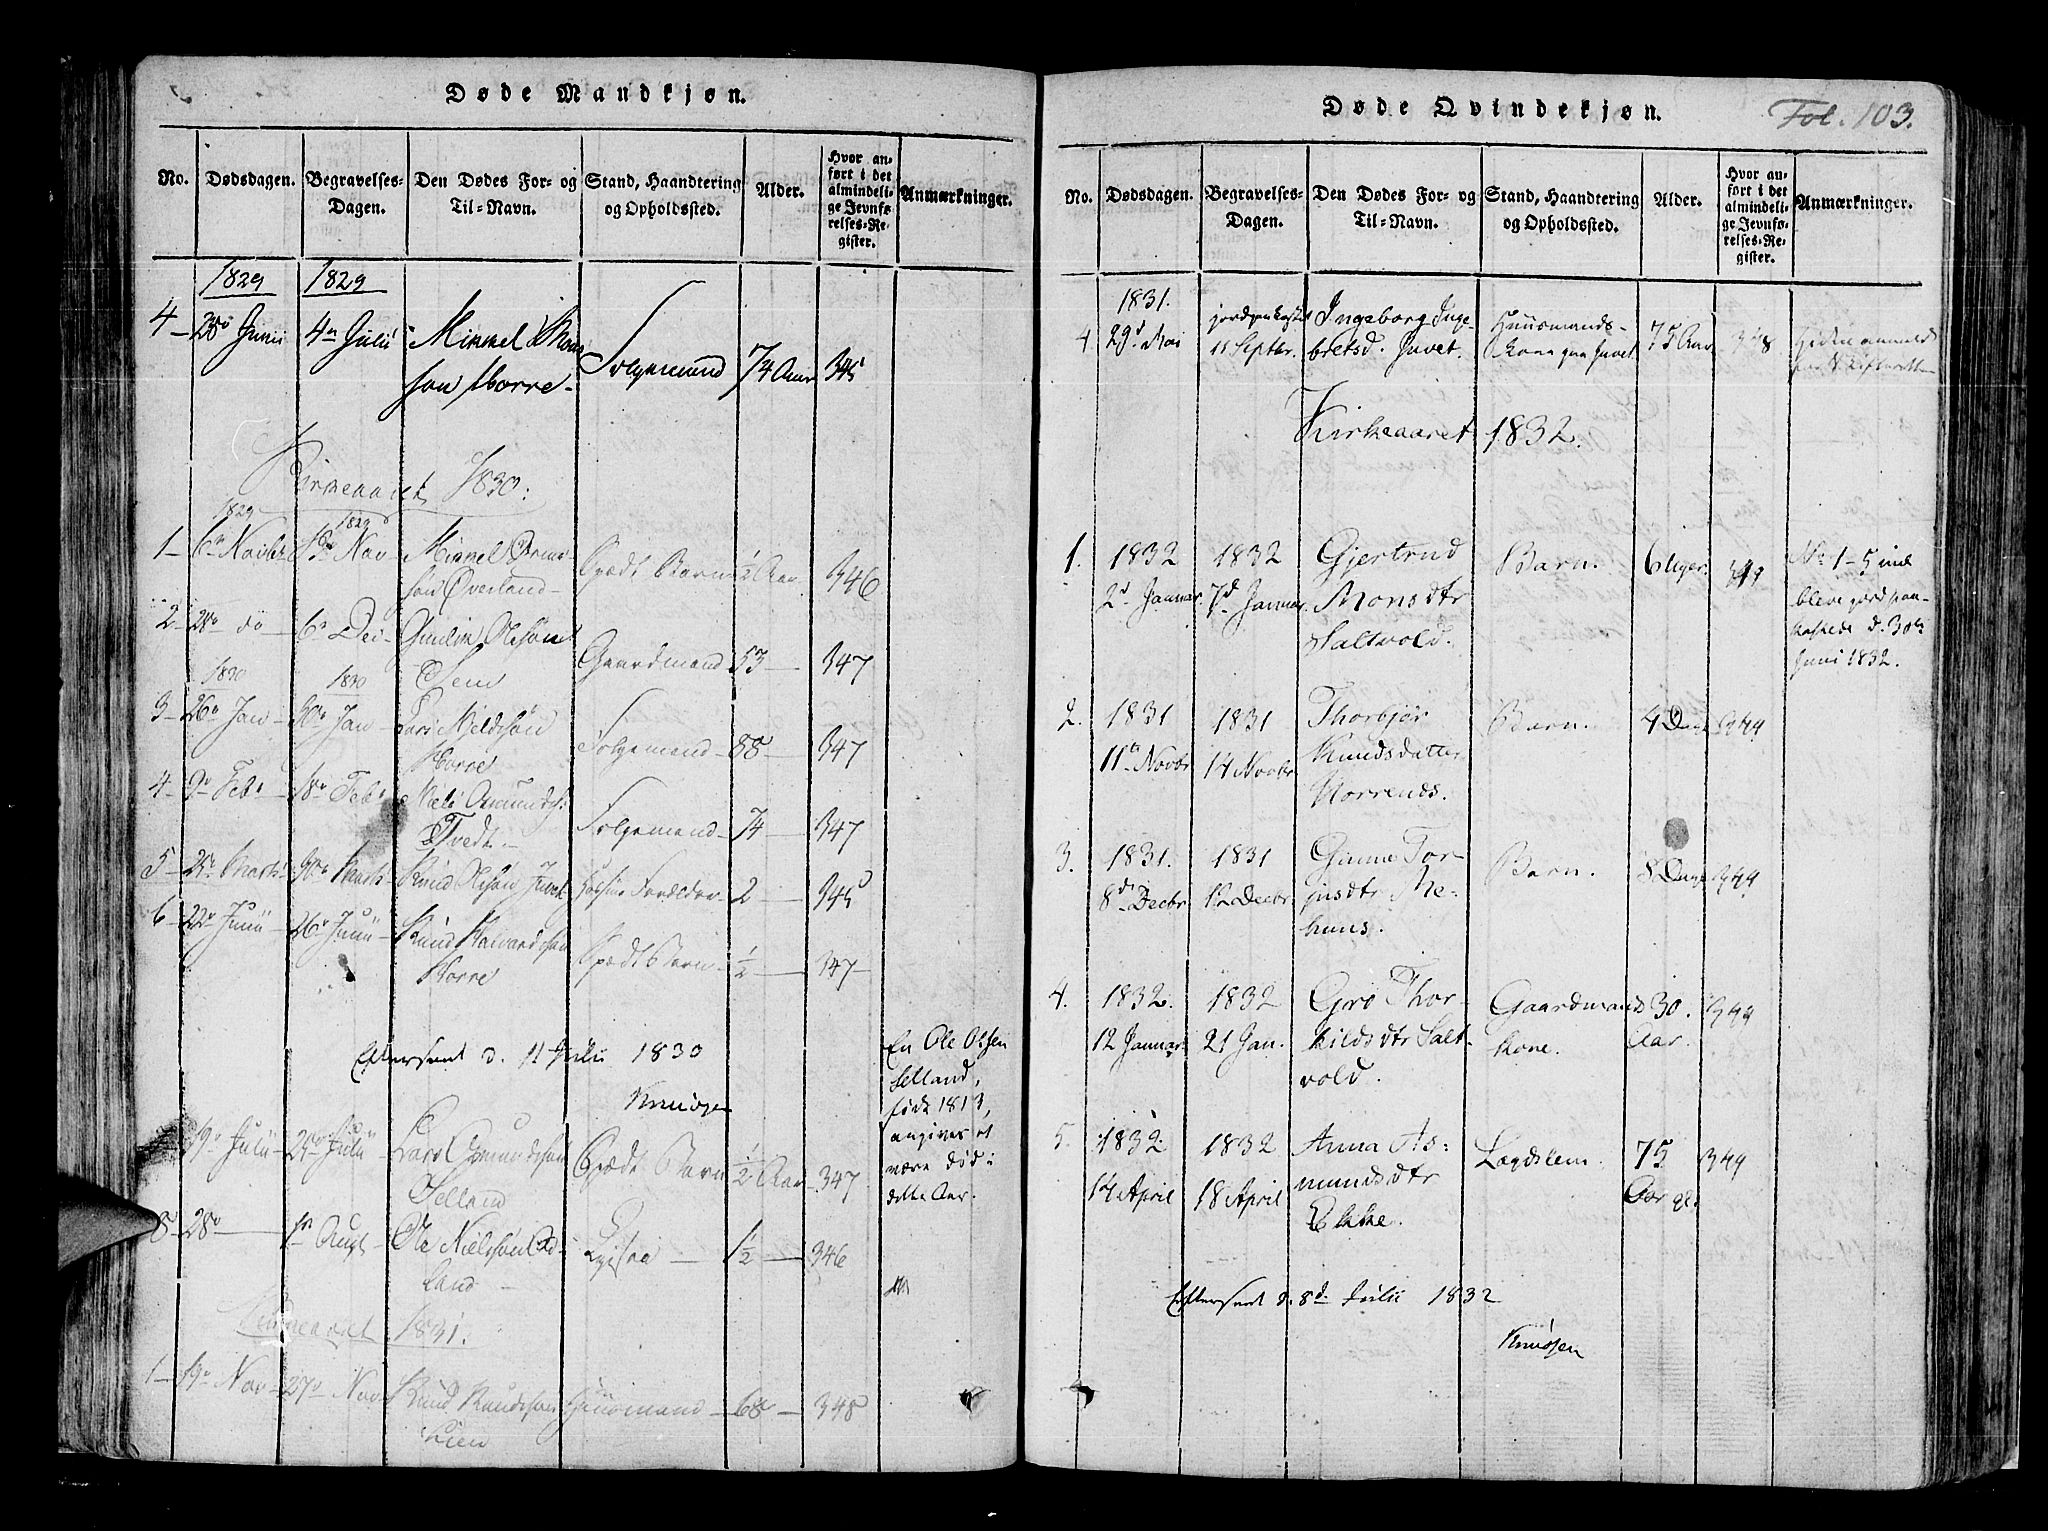 Døde Mandkjøn.
No. Dødsdagen. Begravelses-Dagen. Den Dødes For- og Til-Navn. Stand, Haandtering og Opholdssted. Alder. Hvor anført i det almindelige Jevnførelses-Register. Anmærkninger.
1829 1829
4 28de Junii 4de Julii Mikkel
sen Horre Folgemand 74 Aar 345
Kirkeaaret 1830:
1829 1829
1 6te Novbr Nov Mikkel
sön Överland Spædt Barn ½ Aar 346
2 28de do 6te Dec Gunlik Olesön
Sem Gaardmand 53 347
1830 1830
3 26de Jan 30te Jan Lars Nieldsön
Horre Folgemand 88 347
4 9de Feb 18de Feb Niels Osmunds:
Tvedt Folgemand 74 347
5 Marts 30te Marts Knud Olesön Juvet Forældre 2 345
6 22de Junii 26de Junii Knud Halvardsön
Horre Spædt Barn ½ 347
Efterseet d. 11 Julii 1830
Knudsen
En Ole Olsen
Selland,
født 1813,
angives at
være død i
dette Aar.
19de Julii Julii Lars Osmundsön
Selland Spædt Barn ½ Aar 347
8 28de 1ste Augt Ole Nielssön
land Ligesaa 1½ 346
Kirkeaaret 1831.
1 19de Nov 27de Nov Knud Knudsen
Lien Huusmand 68 348
Døde Qvindekjøn. Fol. 103.
No. Dødsdagen. Begravelses-Dagen. Den Dødes For- og Til-Navn. Stand, Haandtering og Opholdssted. Alder. Hvor anført i det almindelige Jevnførelses-Register. Anmærkninger.
1831.
4 29d Mai jordpaakastet
11 Septbr. Ingeborg Inge-
bretsd. Juvet. Huusmands-
Kone paa Juvet 75 Aar 348
Kirkeaaret 1832.
1. 1832 1832 Gjertrud Barn. 6 Uger. 349 No 1-5 incl
2d Januar 7d Januar Monsdtr bleve jordpaa-
Saltvold. kastede d. 30te
Juni 1832.
2. 1831 1831 Thorbjør Barn. 4 Dage 349
11te Novbr 14 Novbr Knudsdatter
Horrends.
3. 1831. 1831 Gunne Tor- Barn. 8 Dage 349
8de Decbr 12 Decbr jusdtr Me-
huus.
4. 1832. 1832 Gro Thor- Gaardmands 30. 349
12 Januar 21 Jan. kildsdtr Salt- Kone. Aar.
vold.
5. 1832. 1832 Anna As: Lægdslem. 75 349
14 April 18 April mundsdtr Aar gl.
Ekke.
Efterseet d. 8d Julii 1832
Knudsen